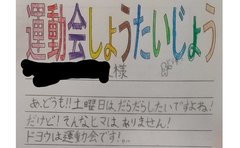 運動会しょうたいじょう
様
あ、どうも!!土曜日は、だらだらしたいですよね!
だけど!そんなヒマは、ありません!
ドヨウは運動会です!。